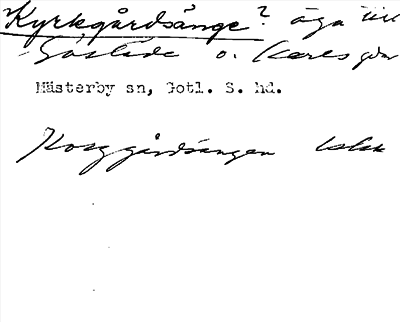 Kyrkgårdsänge? äga till
Göslede o. Karls gdr
Mästerby sn, Gotl. S. hd.
Korggårdsängen